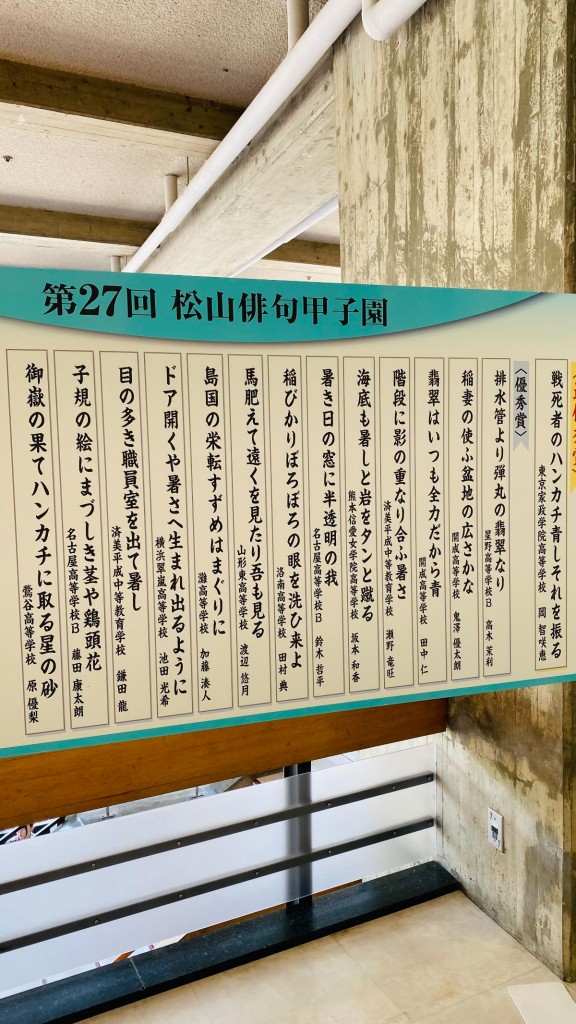 第27回 松山俳句甲子園
戦死者のハンカチ青しそれを振る
東京家政学院高等学校 岡 智咲恵
〈優秀賞〉
排水管より弾丸の翡翠なり
星野高等学校B 高木 茉利
稲妻の使ふ盆地の広さかな
開成高等学校 鬼澤 優太朗
翡翠はいつも全力だから青
開成高等学校 田中 仁
階段に影の重なり合ふ暑さ
済美平成中等教育学校 瀬野 竜旺
海底も暑しと岩をタンと蹴る
熊本信愛女学院高等学校 坂本 和香
暑き日の窓に半透明の我
名古屋高等学校B 鈴木 哲平
稲びかりぼろぼろの眼を洗ひ来よ
洛南高等学校 田村 典
馬肥えて遠くを見たり吾も見る
山形東高等学校 渡辺 悠月
島国の栄転すずめはまぐりに
灘高等学校 加藤 湊人
ドア開くや暑さへ生まれ出るように
横浜翠嵐高等学校 池田 光希
目の多き職員室を出て暑し
済美平成中等教育学校 鎌田 龍
子規の絵にまづしき茎や鶏頭花
名古屋高等学校B 藤田 康太朗
御嶽の果てハンカチに取る星の砂
鶯谷高等学校 原 優梨